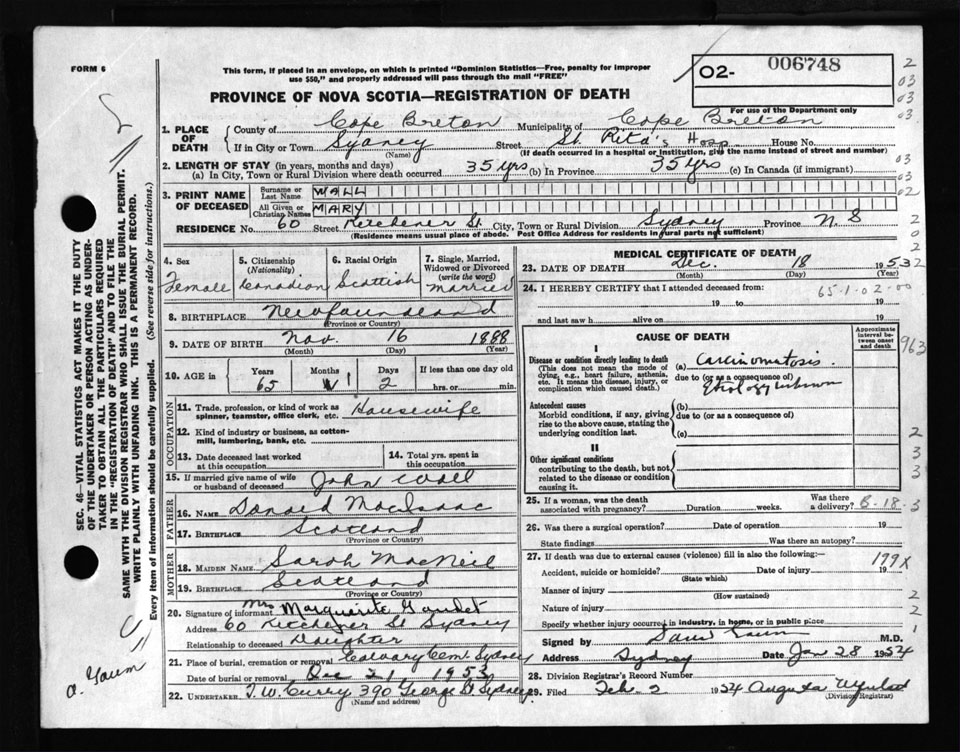 FORM 6
This form, if placed in an envelope, on which is printed "Dominion Statistics—Free, penalty for improper
use $50," and properly addressed will pass through the mail "FREE"
02- 006748
PROVINCE OF NOVA SCOTIA—REGISTRATION OF DEATH
For use of the Department only
1. PLACE OF DEATH County of Cape Breton Municipality of Cape Breton
If in City or Town Sydney Street St. Rita's Hosp House No.
(Name) (If death occurred in a hospital or institution, give the name instead of street and number)
2. LENGTH OF STAY (in years, months and days)
(a) In City, Town or Rural Division where death occurred 35 yrs (b) In Province 35 yrs (c) In Canada (if immigrant)
3. PRINT NAME OF DECEASED Surname or Last Name WALL
All Given or Christian Names MARY
RESIDENCE No. 60 Street Kitchener St City, Town or Rural Division Sydney Province N.S
(Residence means usual place of abode. Post Office Address for residents in rural parts not sufficient)
4. Sex Female
5. Citizenship (Nationality) Canadian
6. Racial Origin Scottish
7. Single, Married, Widowed or Divorced (write the word) married
8. BIRTHPLACE Newfoundland
(Province or Country)
9. DATE OF BIRTH Nov. 16 1888
(Month) (Day) (Year)
10. AGE in Years Months Days If less than one day old
65 1 2 hrs. or min.
11. Trade, profession, or kind of work as spinner, teamster, office clerk, etc. Housewife
12. Kind of industry or business, as cotton-mill, lumbering, bank, etc.
13. Date deceased last worked at this occupation
14. Total yrs. spent in this occupation
OCCUPATION
15. If married give name of wife or husband of deceased John Wall
FATHER
16. NAME Donald MacIsaac
17. BIRTHPLACE Scotland
(Province or Country)
MOTHER
18. MAIDEN NAME Sarah MacNeil
19. BIRTHPLACE Scotland
(Province or Country)
20. Signature of informant Mrs Marguerite Gaudet
Address 60 Kitchener St Sydney
Relationship to deceased Daughter
21. Place of burial, cremation or removal Calvary Cem. Sydney
Date of burial or removal Dec 21 1953
22. UNDERTAKER T.W. Curry 390 George St Sydney
(Name and address)
MEDICAL CERTIFICATE OF DEATH
23. DATE OF DEATH Dec. 18 1953
(Month) (Day) (Year)
24. I HEREBY CERTIFY that I attended deceased from: 65-1-02-00
19 to 19
and last saw h alive on 19
CAUSE OF DEATH
Approximate interval between onset and death
I
Disease or condition directly leading to death
(This does not mean the mode of dying, e.g., heart failure, asthenia, etc. It means the disease, injury, or complication which caused death.)
(a) Carcinomatosis
due to (or as a consequence of)
Etiology unknown
Antecedent causes
Morbid conditions, if any, giving rise to the above cause, stating the underlying condition last.
(b)
due to (or as a consequence of)
(c)
II
Other significant conditions
contributing to the death, but not related to the disease or condition causing it.
25. If a woman, was the death associated with pregnancy? Duration weeks. Was there a delivery? B-18-3
26. Was there a surgical operation? Date of operation 19
State findings Was there an autopsy?
27. If death was due to external causes (violence) fill in also the following:— 199X
Accident, suicide or homicide? Date of injury 19
(State which)
Manner of injury
(How sustained)
Nature of injury
Specify whether injury occurred in industry, in home, or in public place
Signed by M.D.
Address Sydney Date Jan 28 1954
28. Division Registrar's Record Number
29. Filed Feb. 2 1954 Augusta
(Division Registrar)
SEC. 46—VITAL STATISTICS ACT MAKES IT THE DUTY
OF THE UNDERTAKER OR PERSON ACTING AS UNDER-
TAKER TO OBTAIN ALL THE PARTICULARS REQUIRED
IN THE "REGISTRATION OF DEATH" AND TO FILE THE
SAME WITH THE DIVISION REGISTRAR WHO SHALL ISSUE THE BURIAL PERMIT.
WRITE PLAINLY WITH UNFADING INK. THIS IS A PERMANENT RECORD.
Every item of information should be carefully supplied. (See reverse side for instructions.)
a. Gaum
2
03
03
03
03
02
2
0
2
2
963
2
3
3
2
2
1